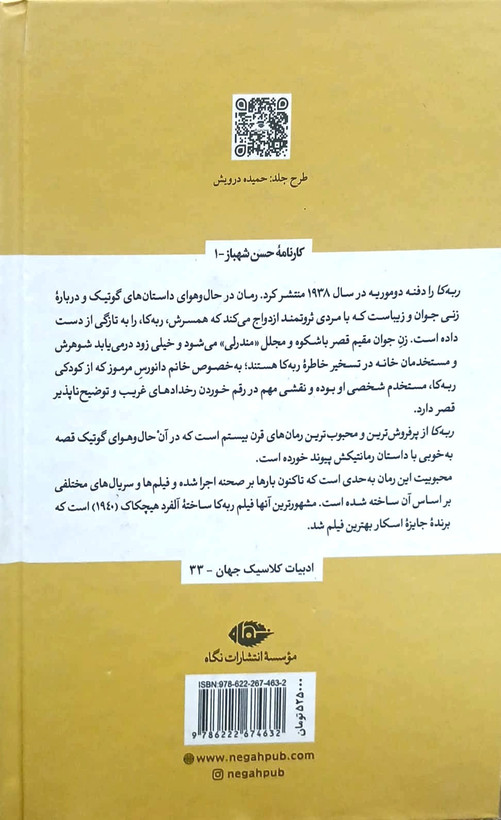 طرح جلد: حمیده درویش
کارنامهٔ حسن شهباز -۱
ربه‌کا را دفنه دوموریه در سال ۱۹۳۸ منتشر کرد. رمان در حال‌وهوای داستان‌های گوتیک و دربارهٔ
زنی جوان و زیباست که با مردی ثروتمند ازدواج می‌کند که همسرش، ربه‌کا، را به تازگی از دست
داده است. زنِ جوان مقیم قصر باشکوه و مجلل «مندرلی» می‌شود و خیلی زود درمی‌یابد شوهرش
و مستخدمان خانه در تسخیر خاطرهٔ ربه‌کا هستند؛ به‌خصوص خانم دانورسِ مرموز که از کودکی
ربه‌کا، مستخدم شخصی او بوده و نقشی مهم در رقم خوردن رخدادهای غریب و توضیح‌ناپذیر
قصر دارد.
ربه‌کا از پرفروش‌ترین و محبوب‌ترین رمان‌های قرن بیستم است که در آن حال‌وهوای گوتیک قصه
به‌خوبی با داستان رمانتیکش پیوند خورده است.
محبوبیت این رمان به‌حدی است که تاکنون بارها بر صحنه اجرا شده و فیلم‌ها و سریال‌های مختلفی
بر اساس آن ساخته شده است. مشهورترین آنها فیلم ربه‌کا ساختهٔ آلفرد هیچکاک (۱۹۴۰) است که
برندهٔ جایزهٔ اسکار بهترین فیلم شد.
ادبیات کلاسیک جهان - ۳۳
مؤسسهٔ انتشارات نگاه
ISBN: 978-622-267-463-2
9 786222 674632
۵۲۵۰۰۰ تومان
www.negahpub.com
negahpub